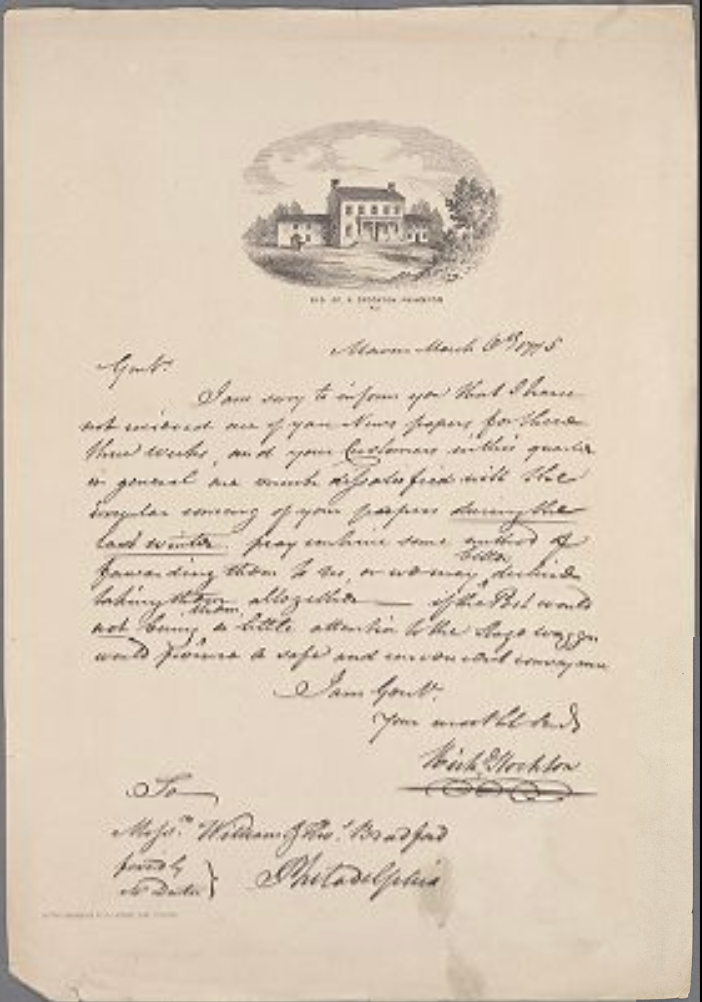 RES. OF R. STOCKTON, PRINCETON
N.J.
Morven March 6th 1775
Gentn.
I am sorry to inform you that I have
not recieved one of your News papers for these
three weeks, and your Customers in this quarter
in general are much dissatisfied with the
irregular coming of your papers during the
last winter. pray contrive some method of
better
forwarding them to us, or we may decline
taking them altogether — if the Post would
them
not bring a little attention to the Stage waggon
would procure a safe and convenient conveyance
I am Gentn.
Your most hble Servt
Richd. Stockton
To
Messrs. William & Thos. Bradford
Philadelphia